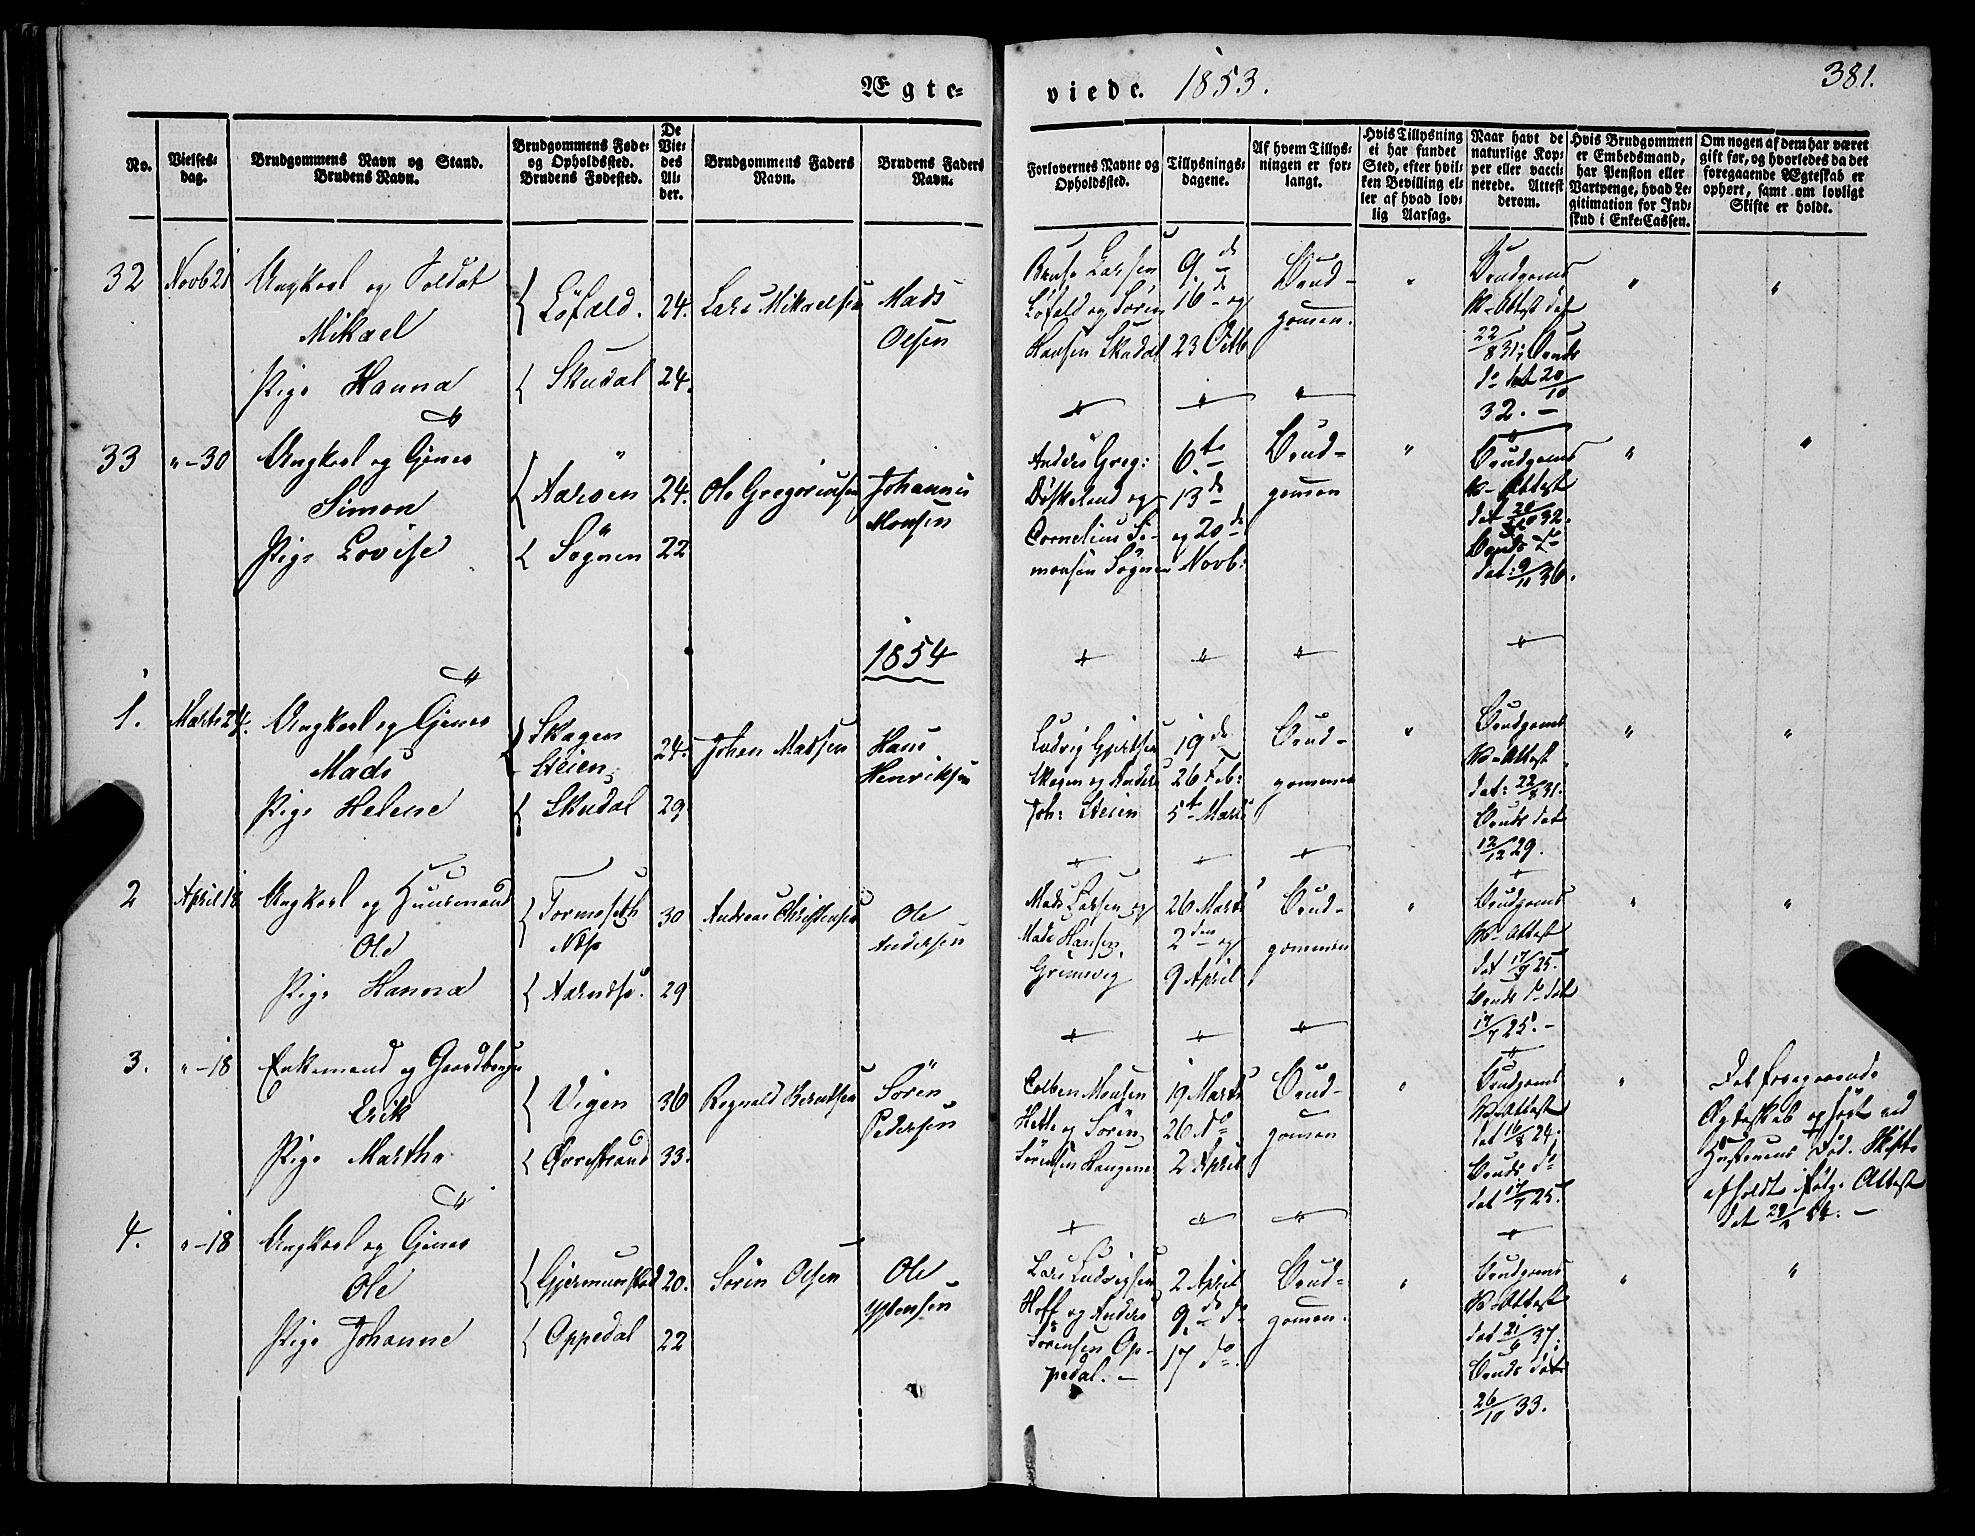 Ægte-
viede. 1853.
381.
No.
Vielses-
dag.
Brudgommens Navn og Stand.
Brudens Navn.
Brudgommens Føde-
og Opholdssted.
Brudens Fødested.
De
Vie-
des
Al-
der.
Brudgommens Faders
Navn.
Brudens Faders
Navn.
Forlovernes Navne og
Opholdssted.
Tillysnings-
dagene.
Af hvem Tillys-
ningen er for-
langt.
Hvis Tillysning
ei har fundet
Sted, efter hvil-
ken Bevilling el-
ler af hvad lov-
lig Aarsag.
Naar havt de
naturlige Kop-
per eller vacci-
nerede. Attest
derom.
Hvis Brudgommen
er Embedsmand,
har Pension eller
Vartpenge, hvad Le-
gitimation for Ind-
skud i Enke-Cassen.
Om nogen af dem har været
gift før, og hvorledes da det
foregaaende Ægteskab er
ophørt, samt om lovligt
Skifte er holdt.
32
Novb 21
Ungkarl og Soldat
Mikael
Pige Hanna
Löfald.
Skudal
24.
24.
Lars Mikaelsen
Mads
Olsen
Larsen
Löfald og Sören
Hansen Skudal
9. de
16 de og
23 Octb
Brud-
gomen.
Brudgoms
V-Attest dat
22/8 31; Bruds
do dat 20/10
32. -
33
" - 30
Ungkarl og Gjener
Simon
Pige Lovise
Aaroen
Sögnen
24.
22
Ole Gregoriusen
Johannes
Monsen
Anders Greg:
Döskeland og
Cornelius Si-
monsen Sögnen
6te
13. de
og 20 de
Novb:
Brud-
gomen
Brudgoms
V-Attest
dat 32.
Bruds do
dat: 9/11 36.
1854
1.
Marts 24.
Ungkarl og Gjener
Mads
Pige Helene
Skagen
Steien
Skudal
24.
29.
Johan Madsen
Hans
Henriksen
Ludvig Gjertsen
Skagen og Anders
Joh: Steien
19 de
26 Feb:
5te Marts
Brud-
gommen
Brudgoms
V-Attest
dat: 22/8 31.
Bruds dat
12/12 29.
2
April 18
Ungkarl og Huusmand
Ole
Pige Hanna
Tormoseth
30
29
Andreas Christensen
Ole
Andersen
Mads Larsen og
Mads Hansen
Grimsvig
26 Marts
2 den og
9 April
Brud-
gommen
Brudgoms
V-Attest
dat 17/7 25.
Bruds do dat
17/7 25. -
3.
" - 18
Enkemand og Gaardbruger
Erik
Pige Martha
Vigen
Ovrestrand
36
33.
Regnald Berntsen
Sören
Pedersen
Colben Monsen
Hette og Sören
Sörensen Haugene
19 Marts
26 do
2 April
Brud-
gomen
Brudgoms
V-Attest
dat 16/8 24.
Bruds do
dat 17/7 25.
Det foregaaende
Ægteskab ophört ved
Hustruens Död. Skifte
afholdt ifölge Attest
4.
" - 18
Ungkarl og Gjener
Ole
Pige Johanne
Gjermunstad
Oppedal
20.
22
Sörin Olsen
Ole
Lars Ludvigsen
Hoff og Anders
Sörensen Op-
pedal. -
2 April
9. de do
17 do.
Brud-
gomen.
Brudgoms
V-Attest
dat 37:
Bruds dat
26/10 33.